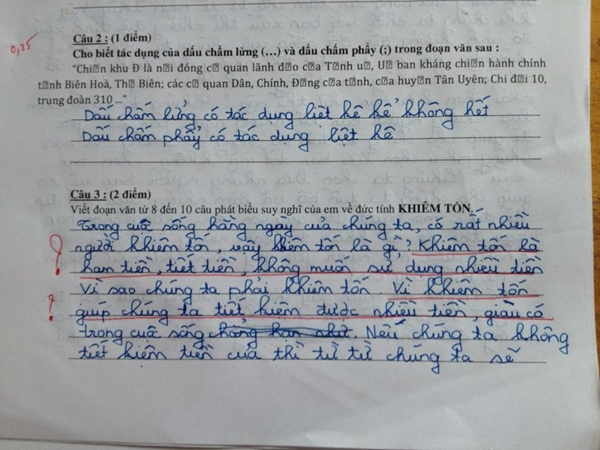 0,25
Câu 2 : (1 điểm)
Cho biết tác dụng của dấu chấm lửng (…) và dấu chấm phẩy (;) trong đoạn văn sau :
"Chi�n khu Đ là n�i đóng c� quan lãnh d�o của T�nh u�, U� ban kháng chi�n hành chính
t�nh Biên Hoà, Th� Biên; các c� quan Dân, Chính, Đ�ng c�a t�nh, c�a huy�n Tân Uyên; Chi đ�i 10,
trung đoàn 310 ..."
Dấu chấm lửng có tác dụng liệt kê kể không hết
Dấu chấm phẩy có tác dụng liệt kê
Câu 3 : (2 điểm)
Viết đoạn văn từ 8 đến 10 câu phát biểu suy nghĩ của em về đức tính KHIÊM TỐN.
Trong cuộc sống hằng ngày của chúng ta, có rất nhiều
người khiêm tốn, vậy khêm tốn là gì? Khiêm tốn là
? ham tiền, tiết tiền, không muốn sử dụng nhiều tiền
Vì sao chúng ta phải khiêm tốn Vì khiêm tốn
? giúp chúng ta tiết kiệm được nhiều tiền, giàu có
trong cuộc sống chẳng hạn như. Nếu chúng ta không
tiết kiệm tiền của thì từ từ chúng ta sẽ